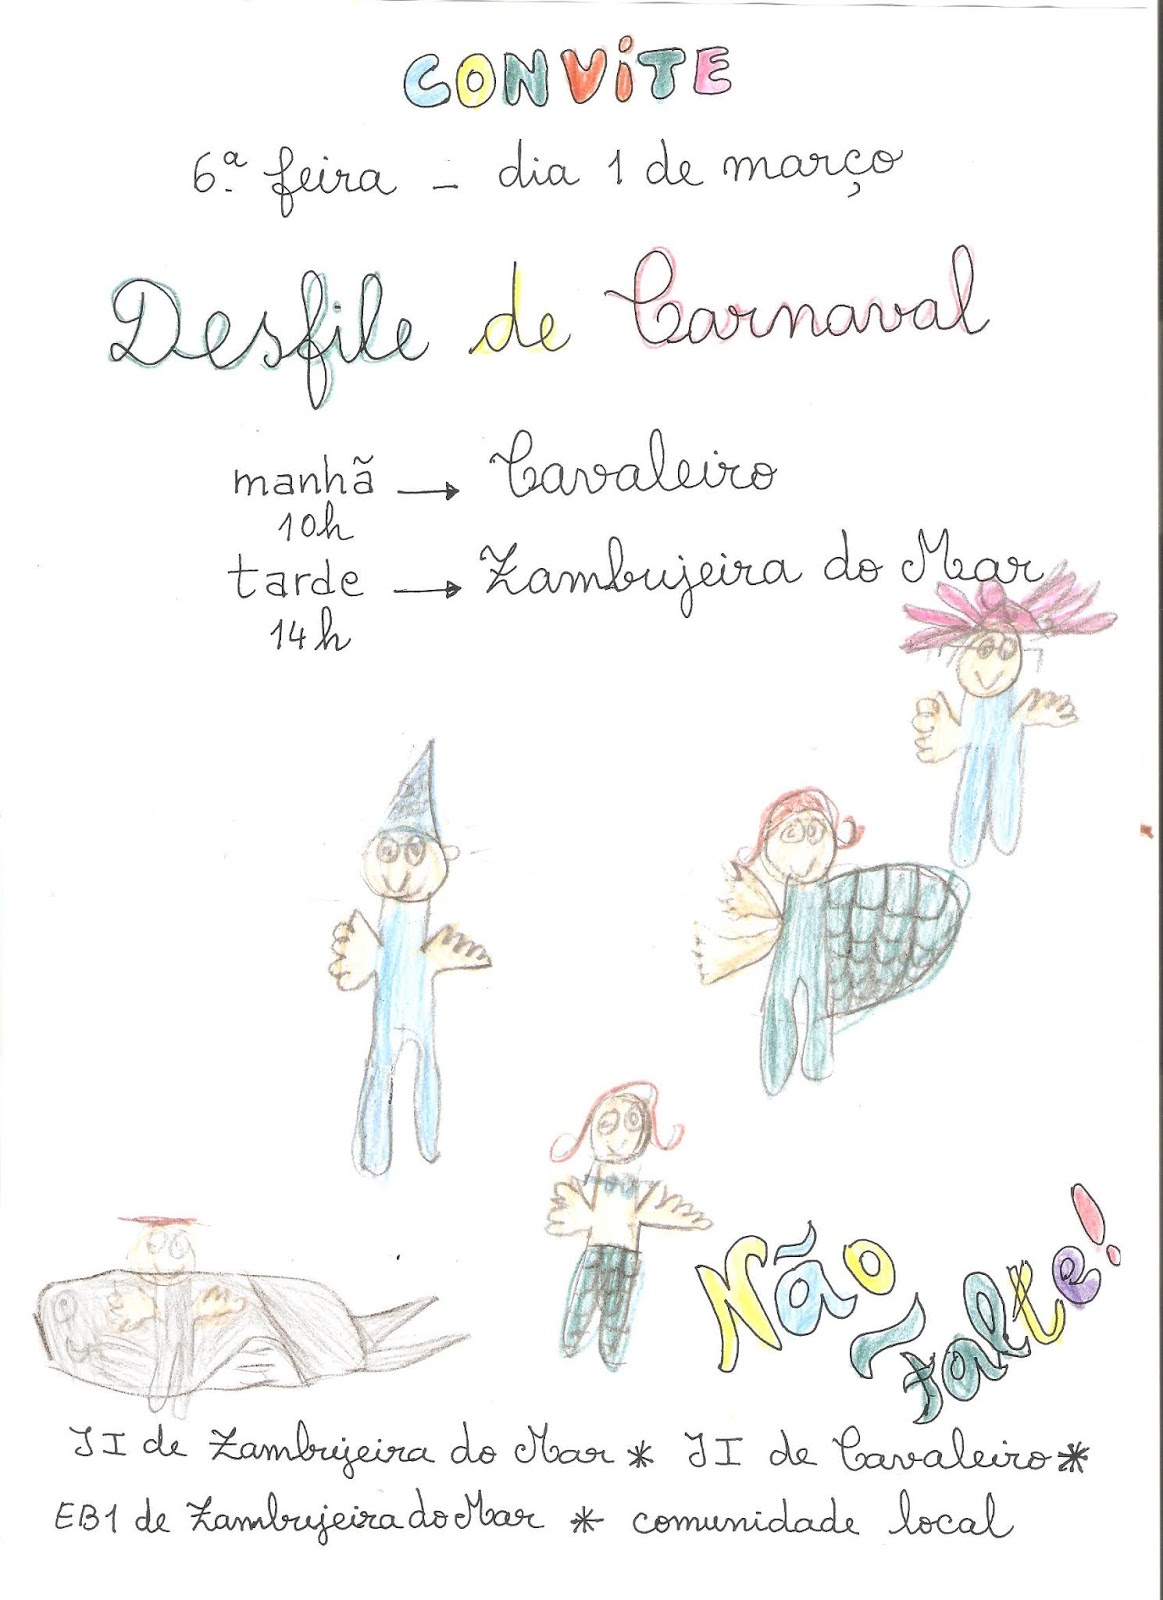 CONVITE
6.ª feira - dia 1 de março
Desfile de Carnaval
manhã → Cavaleiro
10h
tarde → Zambujeira do Mar
14h
Não Falte!
JI de Zambujeira do Mar * JI de Cavaleiro *
EB1 de Zambujeira do Mar * comunidade local